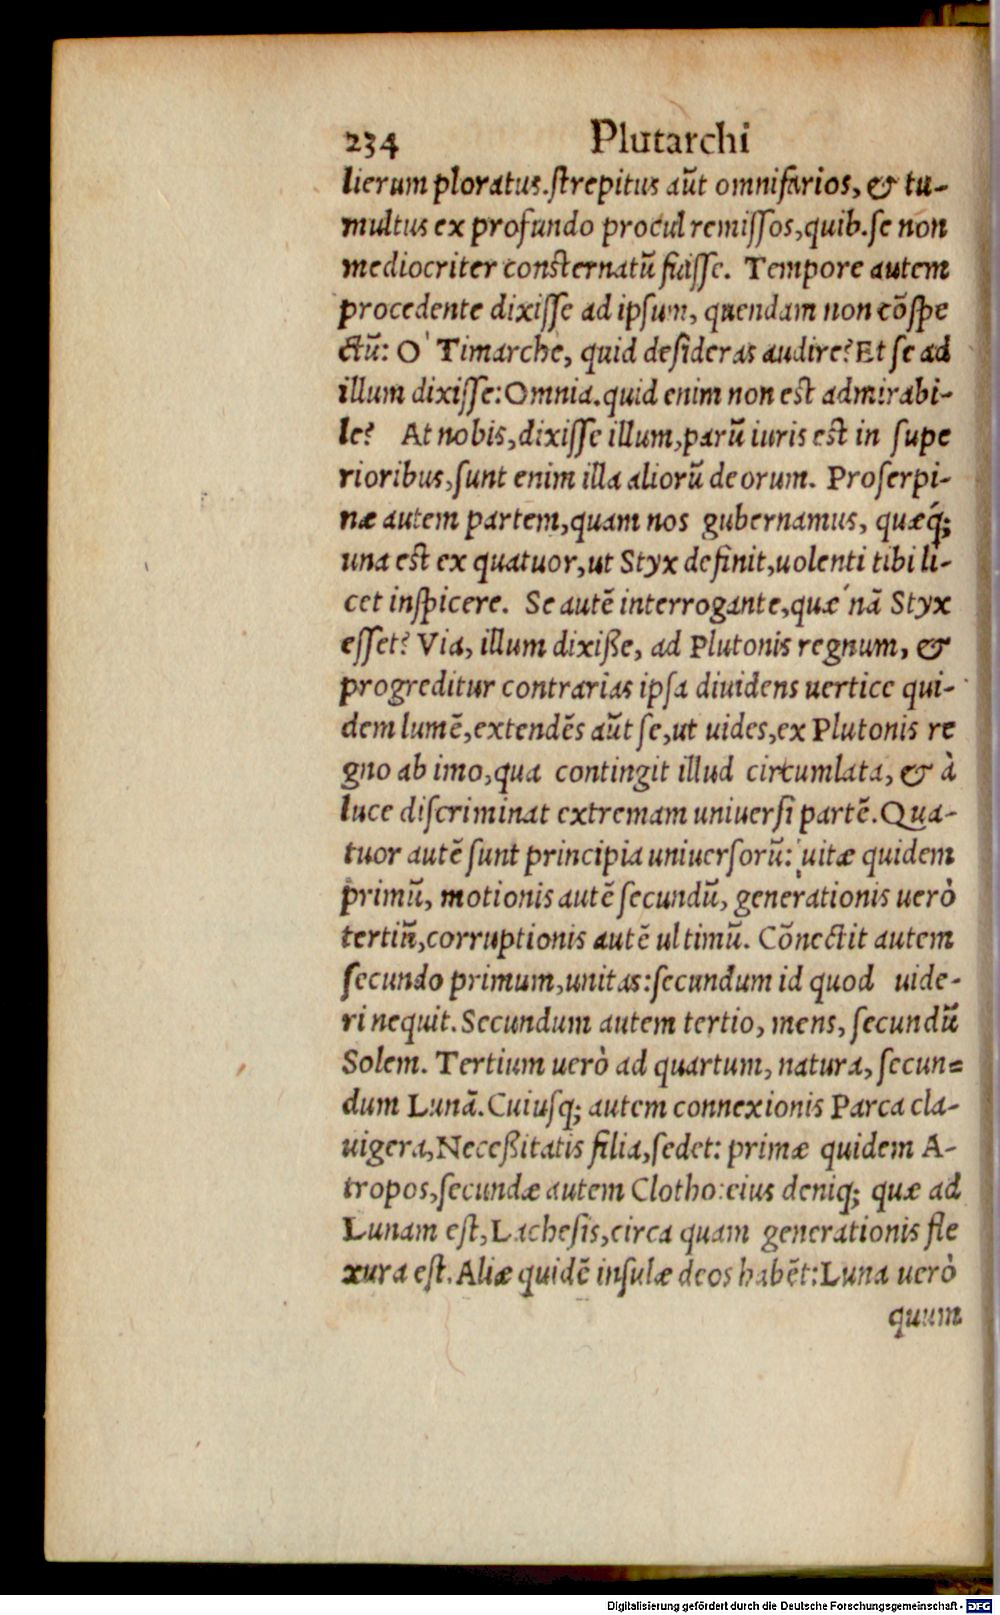 234 Plutarchi
lierum ploratus.strepitus aũt omnifarios, & tu-
multus ex profundo procul remissos,quib.se non
mediocriter consternatũ fuisse. Tempore autem
procedente dixisse ad ipsum, quendam non cõspe
ctũ: O Timarche, quid desideras audire? Et se ad
illum dixisse: Omnia.quid enim non est admirabi-
le? At nobis,dixisse illum,parũ iuris est in supe
rioribus,sunt enim illa aliorũ deorum. Proserpi-
næ autem partem,quam nos gubernamus, quæq́;
una est ex quatuor,ut Styx definit,uolenti tibi li-
cet inspicere. Se autẽ interrogante,quæ nã Styx
esset? Via, illum dixiße, ad Plutonis regnum, &
progreditur contrarias ipsa diuidens uertice qui-
dem lumẽ,extendẽs aũt se,ut uides,ex Plutonis re
gno ab imo,qua contingit illud circumlata, & à
luce discriminat extremam uniuersi partẽ. Qua-
tuor autẽ sunt principia uniuersorũ: uitæ quidem
primũ, motionis autẽ secundũ, generationis uerò
tertiũ,corruptionis autẽ ultimũ. Cõnectit autem
secundo primum,unitas:secundum id quod uide-
ri nequit. Secundum autem tertio, mens, secundũ
Solem. Tertium uerò ad quartum, natura, secun=
dum Lunã. Cuiusq; autem connexionis Parca cla-
uigera, Neceßitatis filia,sedet: primæ quidem A-
tropos,secundæ autem Clotho:eius deniq; quæ ad
Lunam est, Lachesis,circa quam generationis fle
xura est. Aliæ quidẽ insulæ deos habẽt: Luna uerò
quum
Digitalisierung gefördert durch die Deutsche Forschungsgemeinschaft - DFG